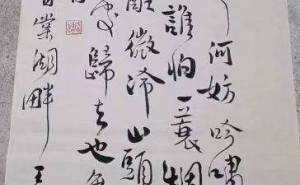 何妨吟嘯
誰怕一蓑烟
醒微冷山頭
處歸去也無
湖畔王